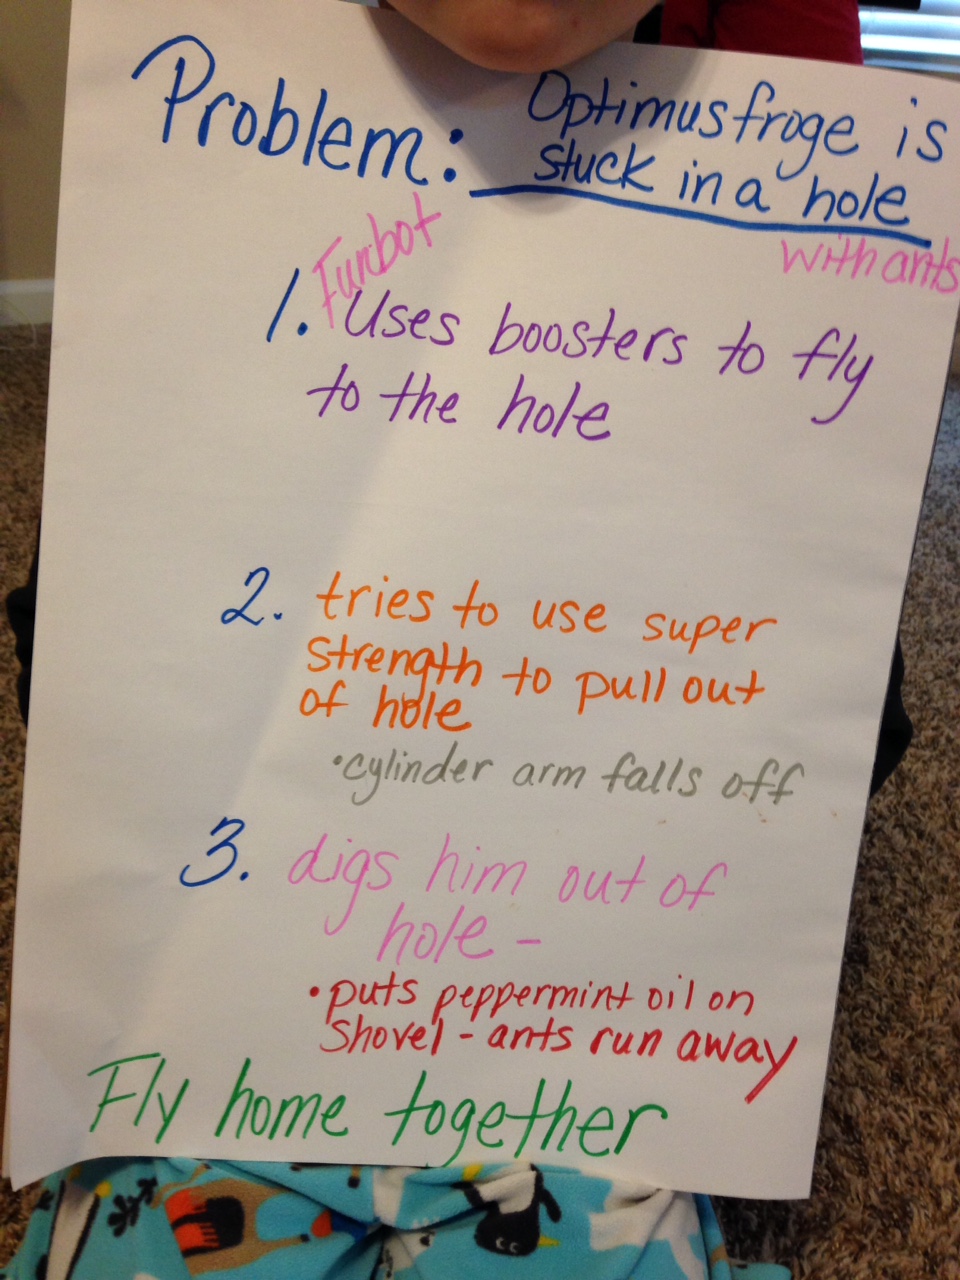 Problem: Optimusfroge is
stuck in a hole
with ants
Funbot
1. Uses boosters to fly
to the hole
2. tries to use super
strength to pull out
of hole
•cylinder arm falls off
3. digs him out of
hole -
•puts peppermint oil on
Shovel - ants run away
Fly home together